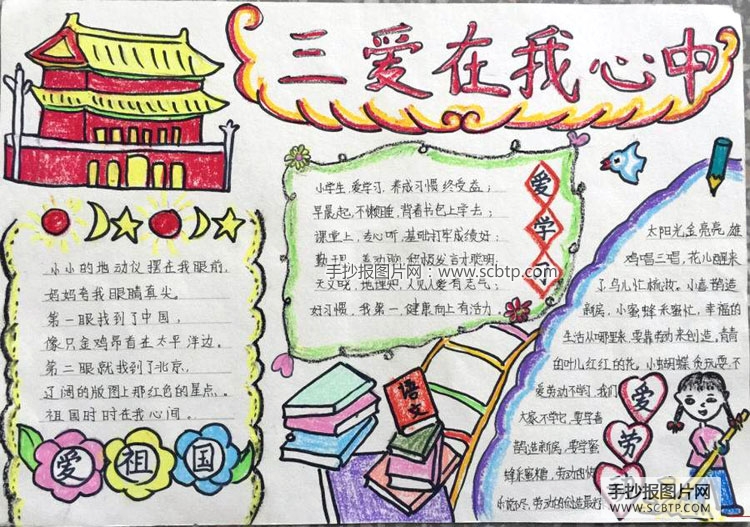 三爱在我心中
小小的地动仪摆在我眼前,
妈妈夸我眼睛真尖。
第一眼我到了中国,
像只金鸡昂首在太平洋边。
第二眼就我到了北京,
辽阔的版图上那红色的星点。
祖国时时在我心间。
爱祖国
小学生,爱学习,养成习惯终受益;
早晨起,不懒睡,背着书包上学去;
课堂上,专心听,基础打牢成绩好;
手抄报图片网:www.scbtp.com
天文晓,地理知,人见人爱有志气;
好习惯,我第一,健康向上有活力。
爱学习
语文
太阳光金亮亮,雄
鸡唱三唱,花儿醒来
了鸟儿忙梳妆。小喜鹊造
新房,小蜜蜂采蜜忙,幸福的
生活从哪里来,要靠劳动来创造,青青
的叶儿红红的花。小蝴蝶贪玩耍,不
爱劳动不学习,我们
大家不学它,要学喜
鹊造新房,要学蜜
蜂采蜜糖,劳动的快
乐说不尽,劳动的创造最
爱劳
手抄报图片网
WWW.SCBTP.COM